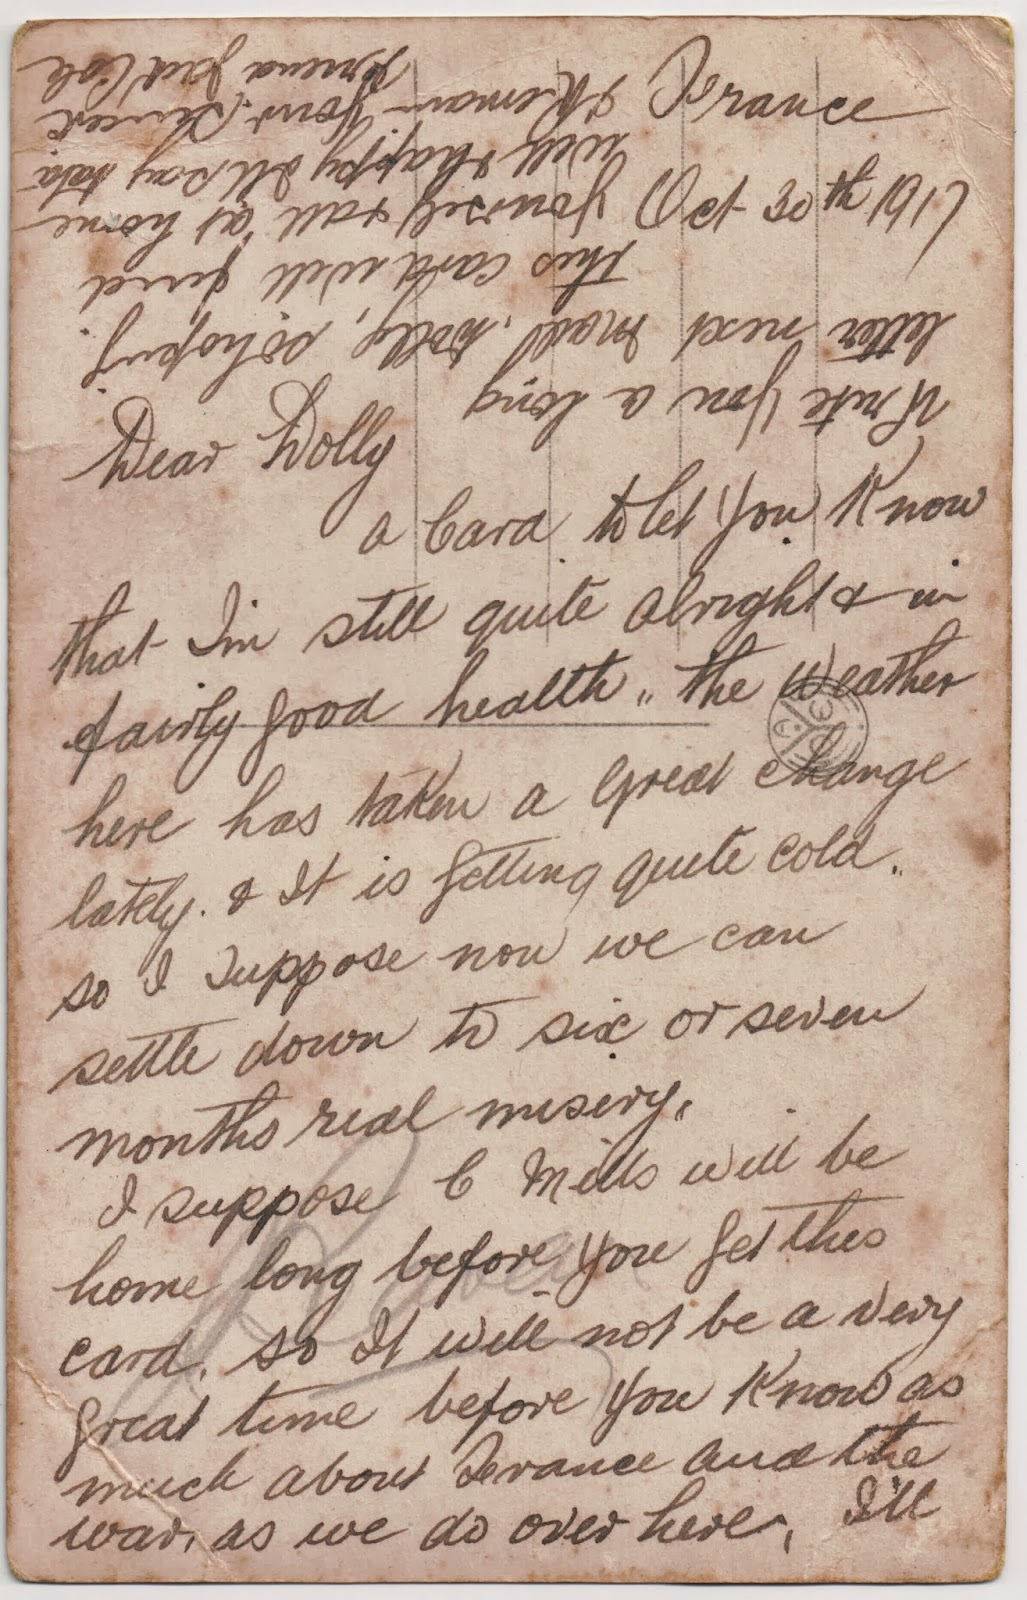 France
Oct 30th 1917
Dear Dolly
a Card to let you Know
that I'm still quite alright & in
fairly good health,, the Weather
here has taken a great change
lately. & It is getting quite cold..
so I suppose now we can
settle down to six or seven
months real misery.
I suppose C Mills will be
home long before you get this
card. so It will not be a very
great time before you Know as
much about France and the
war, as we do over here, I'll
Write You a long
letter next mail, Dolly, so hoping
this card will find
yourself & all at home
well & happy Ill say tata
& Remain Yours Sincere
friend